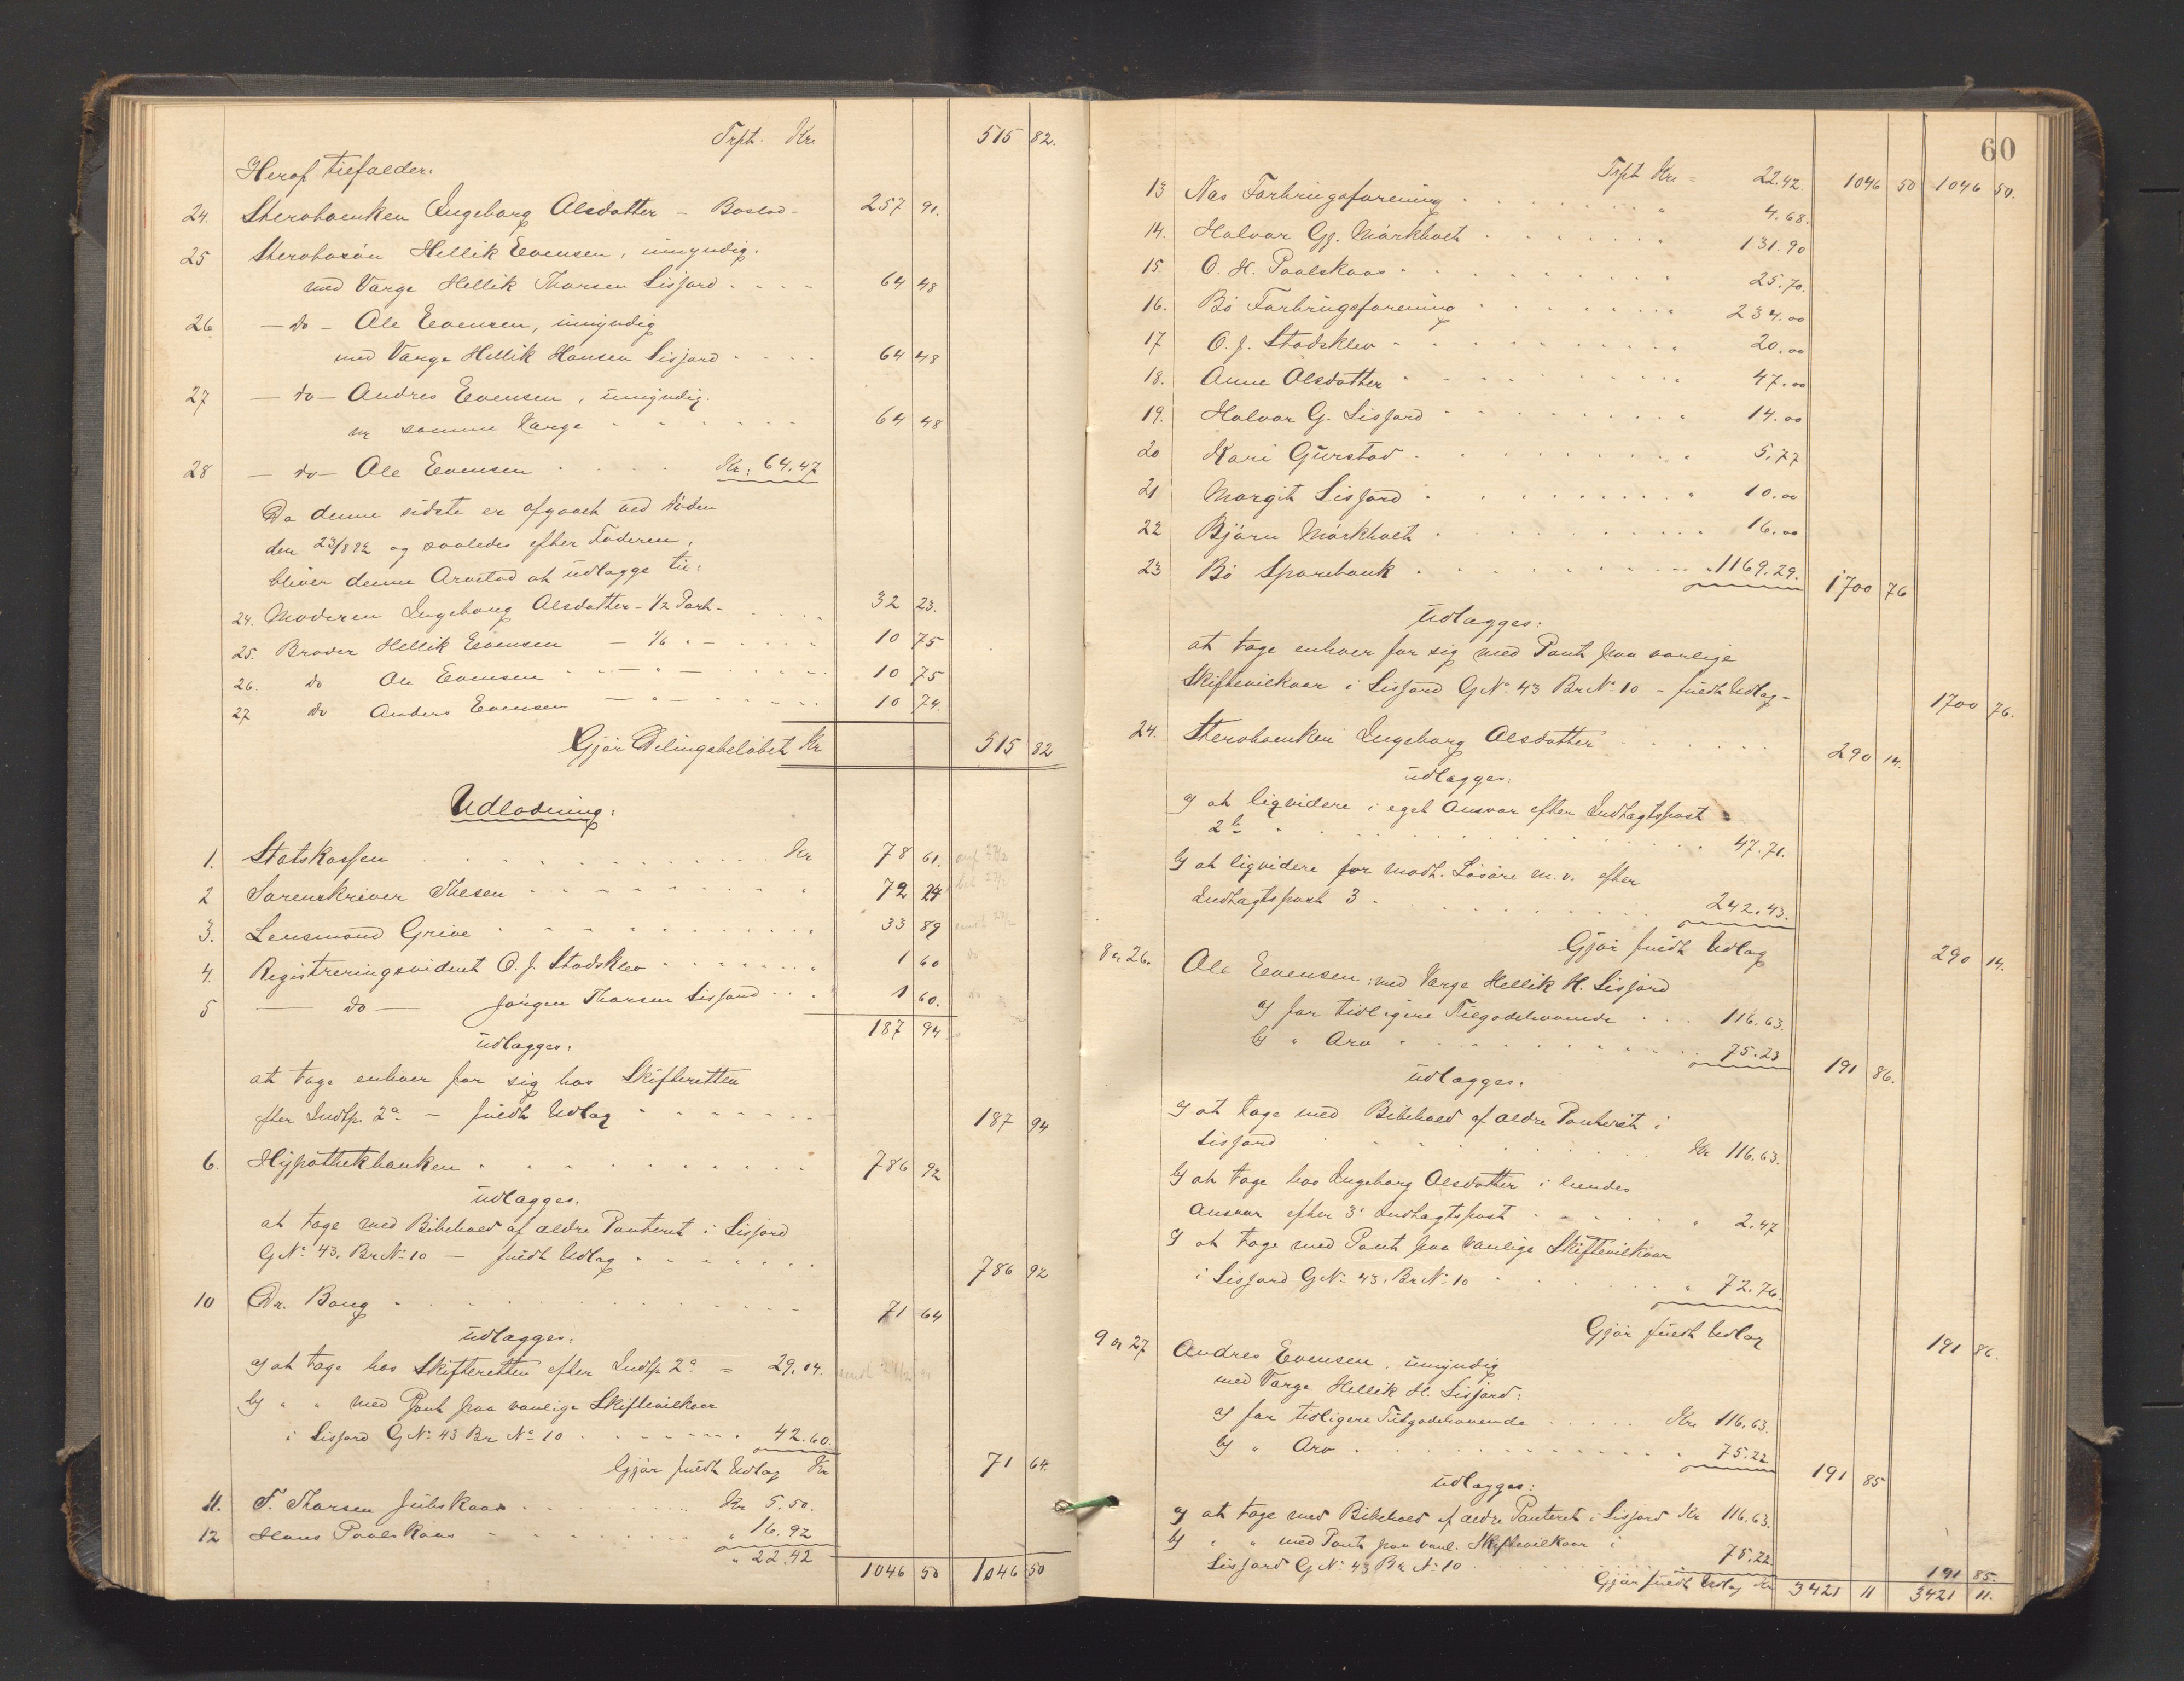 Trpt. Kr. 515 82.
Heraf tilfalder:
24. Sterboenken Ingeborg Olsdatter – Boslod – 257 91.
25 Sterbosøn Hellik Evensen, umyndig.
med Værge Hellik Thorsen Lisjord . . . . 64 48
26 – do – Ole Evensen, umyndig
med Værge Hellik Hansen Lisjord . . . . 64 48
27 – do – Andres Evensen, umyndig.
m samme Værge . . . . . . 64 48
28 – do – Ole Evensen . . . . Kr. 64.47
Da denne sidste er afgaaet ved Døden
den 23/8 92 og saaledes efter Faderen,
bliver denne Arvelod at udlægge til:
24. Moderen Ingeborg Olsdatter – 1/2 Part – . . . . 32 23.
25. Broder Hellik Evensen – 1/6 „ – . . . . 10 75
26. do Ole Evensen . . – „ – . . . . 10 75
27 do Anders Evensen – „ – . . . . 10 74.
Gjør Delingsbeløbet Kr 515 82
Udlodning:
1. Statskassen . . . . . . . . . . Kr 78 61.
2 Sorenskriver Thesen . . . . . . . . „ 72 24
3. Lensmand Grive . . . . . . . . . „ 33 89
4. Registreringsvidnet O. J. Stadsklev . . . . . . „ 1 60
5 – do – Jørgen Thorsen Lisjord . . . „ 1 60.
187 94
udlægges:
at tage enhver for sig hos Skifteretten
efter Indtp. 2a – fuldt Udlag . . . . . . . 187 94
6. Hypothekbanken . . . . . . . . . . 786 92
udlægges.
at tage med Bibehold af ældre Panteret i Lisjord
G№ 43. Br№ 10 – fuldt Udlag . . . . . . . 786 92
10 Dr. Bang . . . . . . . . . . . . 71 64
udlægges:
a) at tage hos Skifteretten efter Indtp. 2a = 29.04.
b) „ „ med Pant paa vanlige Skiftevilkaar
i Lisjord G№ 43 Br № 10 . . . . . . . 42.60.
Gjør fuldt Udlag Kr 71 64.
11. T. Thorsen Julskaas . . . . . . . . . Kr 5.50.
12 Hans Paalskaas . . . . . . . . . „ 16.92
„ 22.42 1046 50 1046 50
60
Trpt Kr. = 22.42. 1046 50 1046 50.
13 Næs Forbrugsforening . . . . . . . . „ 4.68.
14. Halvor Gj. Mørkholt . . . . . . . „ 131.90
15. O. H. Paalskaas . . . . . . . . . „ 25.70.
16. Bø Forbrugsforening . . . . . . . „ 234.00
17 O. J. Stadsklev . . . . . . . . . „ 20.00
18. Anne Olsdatter . . . . . . . . . „ 47.00
19. Halvor G. Lisjord . . . . . . . . „ 14.00
20 Kari Gurstad . . . . . . . . . „ 5.77
21 Margit Lisjord . . . . . . . . „ 10.00
22 Bjørn Mørkholt . . . . . . . . . „ 16.00
23 Bø Sparebank . . . . . . . . . „ 1169.29. 1700 76
udlægges:
at tage enhver for sig med Pant paa vanlige
Skiftevilkaar i Lisjord G№ 43 Br№ 10 – fuldt Udlag – 1700 76.
24. Sterboenken Ingeborg Olsdatter . . . . . . 290 14.
udlægges:
a) at liqvidere i eget Ansvar efter Indtægtspost
2b „ . . . . . . . . . . . 47.71.
b) at liqvidere for modt. Løsøre m. v. efter
Indtægtspost 3 . . . . . . . . . 242.43.
Gjør fuldt Udlag 290 14.
8 og 26. Ole Evensen: med Værge Hellik H. Lisjord
a) for tidligere Tilgodehavende . . . 116.63.
b) „ Arv . . . . . . . . . . 75.23 191 86.
udlægges:
a) at tage med Bibehold af ældre Panteret i
Lisjord . . . . . . . . . Kr 116.63.
b) at tage hos Ingeborg Olsdatter i hendes
Ansvar efter 3' Indtægtspost . . . . . „ 2.47
c) at tage med Pant paa vanlige Skiftevilkaar
i Lisjord G№ 43. Br№ 10 . . . . . . „ 72.76.
Gjør fuldt Udlag 191 86.
9 og 27 Andres Evensen, umyndig
med Værge Hellik H. Lisjord:
a) for tidligere Tilgodehavende . . . . . Kr. 116.63.
b) „ Arv . . . . . . . . . . . . „ 75.22 191 85
udlægges:
a) at tage med Bibehold af ældre Panteret i Lisjord Kr 116.63.
b) „ „ med Pant paa vanl. Skiftevilkaar i
Lisjord G№ 43 Br № 10 . . . . . . . 75.22
Gjør fuldt Udlag Kr 191 85.
3421 11 3421 11.